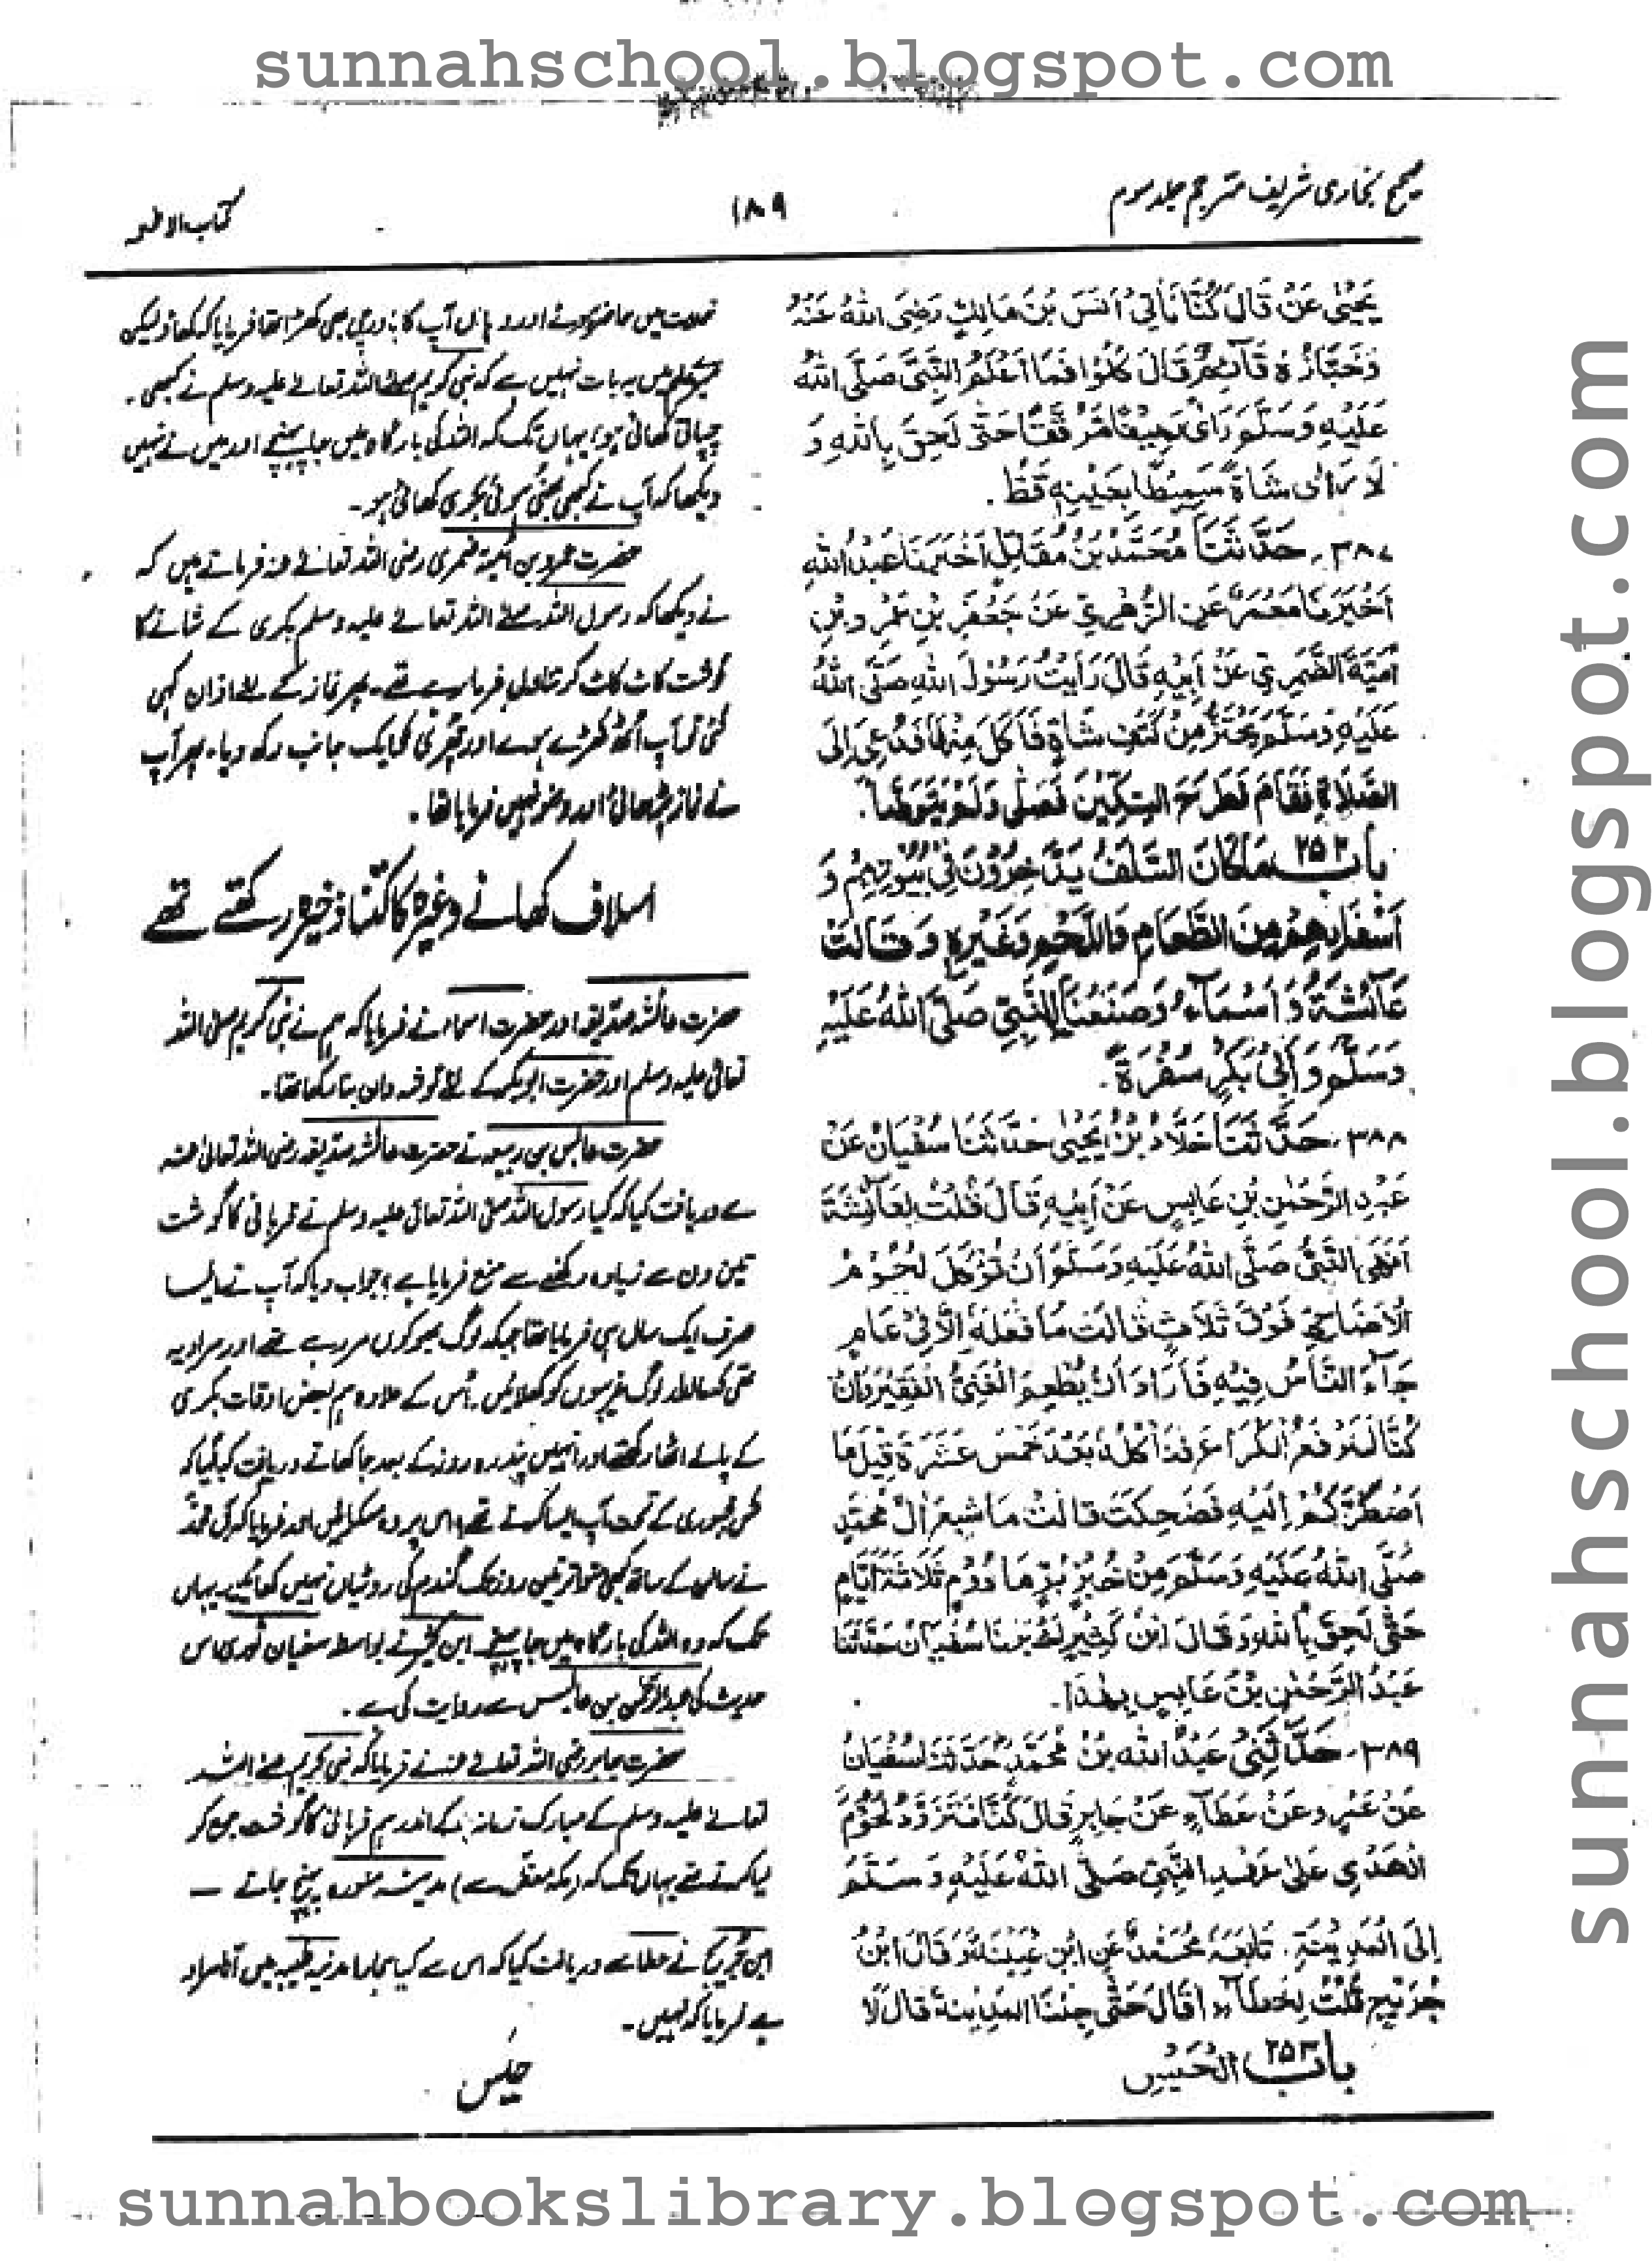 sunnahschool.blogspot.com
صحیح بخاری شریف مترجم جلد سوم
۱۸۹
کتاب الاطعمہ
يَحْيٰى عَنْ قَالَ كُنَّا نَأْتِيْ اَنَسَ بْنَ مَالِكٍ رَضِيَ اللهُ عَنْهُ
وَخَبَّازُهٗ قَآئِمٌ قَالَ كُلُوْا فَمَا اَعْلَمُ النَّبِيَّ صَلَّى اللهُ
عَلَيْهِ وَسَلَّمَ رَاٰى رَغِيْفًا مُّرَقَّقًا حَتّٰى لَحِقَ بِاللهِ وَ
لَا رَاٰى شَاةً سَمِيْطًا بِعَيْنِهٖ قَطُّ.
۳۸۷- حَدَّثَنَا مُحَمَّدُ بْنُ مُقَاتِلٍ اَخْبَرَنَا عَبْدُ اللهِ
اَخْبَرَنَا مَعْمَرٌ عَنِ الزُّهْرِيِّ عَنْ جَعْفَرِ بْنِ عَمْرِو بْنِ
اُمَيَّةَ الضَّمْرِيِّ عَنْ اَبِيْهِ قَالَ رَاَيْتُ رَسُوْلَ اللهِ صَلَّى اللهُ
عَلَيْهِ وَسَلَّمَ يَحْتَزُّ مِنْ كَتِفِ شَاةٍ فَاَكَلَ مِنْهَا فَدُعِيَ اِلَى
الصَّلَاةِ فَقَامَ فَطَرَحَ السِّكِّيْنَ فَصَلّٰى وَلَمْ يَتَوَضَّأْ.
باب ۲۵۲ مَا كَانَ السَّلَفُ يَدَّخِرُوْنَ فِيْ بُيُوْتِهِمْ وَ
اَسْفَارِهِمْ مِنَ الطَّعَامِ وَاللَّحْمِ وَغَيْرِهٖ وَقَالَتْ
عَآئِشَةُ وَاَسْمَآءُ وَصَنَعْنَا لِلنَّبِيِّ صَلَّى اللهُ عَلَيْهِ
وَسَلَّمَ وَاَبِيْ بَكْرٍ سُفْرَةً.
۳۸۸- حَدَّثَنَا خَلَّادُ بْنُ يَحْيٰى حَدَّثَنَا سُفْيَانُ عَنْ
عَبْدِ الرَّحْمٰنِ بْنِ عَابِسٍ عَنْ اَبِيْهِ قَالَ قُلْتُ لِعَآئِشَةَ
اَنَهَى النَّبِيُّ صَلَّى اللهُ عَلَيْهِ وَسَلَّمَ اَنْ تُؤْكَلَ لُحُوْمُ
الْاَضَاحِيِّ فَوْقَ ثَلَاثٍ قَالَتْ مَا فَعَلَهٗ اِلَّا فِيْ عَامٍ
جَآءَ النَّاسُ فِيْهِ فَاَرَادَ اَنْ يُطْعِمَ الْغَنِيُّ الْفَقِيْرَ وَاِنْ
كُنَّا لَنَرْفَعُ الْكُرَاعَ فَنَأْكُلُهٗ بَعْدَ خَمْسَ عَشَرَةَ قِيْلَ مَا
اضْطَرَّكُمْ اِلَيْهِ فَضَحِكَتْ قَالَتْ مَا شَبِعَ اٰلُ مُحَمَّدٍ
صَلَّى اللهُ عَلَيْهِ وَسَلَّمَ مِنْ خُبْزِ بُرٍّ مَاْدُوْمٍ ثَلَاثَةَ اَيَّامٍ
حَتّٰى لَحِقَ بِاللهِ وَقَالَ ابْنُ كَثِيْرٍ اَخْبَرَنَا سُفْيَانُ حَدَّثَنَا
عَبْدُ الرَّحْمٰنِ بْنُ عَابِسٍ بِهٰذَا.
۳۸۹- حَدَّثَنِيْ عَبْدُ اللهِ بْنُ مُحَمَّدٍ حَدَّثَنَا سُفْيَانُ
عَنْ عَمْرٍو عَنْ عَطَآءٍ عَنْ جَابِرٍ قَالَ كُنَّا نَتَزَوَّدُ لُحُوْمَ
الْهَدْيِ عَلٰى عَهْدِ النَّبِيِّ صَلَّى اللهُ عَلَيْهِ وَسَلَّمَ
اِلَى الْمَدِيْنَةِ. تَابَعَهٗ مُحَمَّدٌ عَنِ ابْنِ عُيَيْنَةَ وَقَالَ ابْنُ
جُرَيْجٍ قُلْتُ لِعَطَآءٍ اَقَالَ حَتّٰى جِئْنَا الْمَدِيْنَةَ قَالَ لَا
باب ۲۵۳ الْحَيْسِ
خدمت میں حاضر ہوئے اور وہاں آپ کا باورچی بھی کھڑا تھا فرمایا کہ کھاؤ لیکن
میرے علم میں یہ بات نہیں ہے کہ نبی کریم صلے اللہ تعالےٰ علیہ وسلم نے کبھی
چپاتی کھائی ہو، یہاں تک کہ اللہ کی بارگاہ میں جا پہنچے اور میں نے نہیں
دیکھا کہ آپ نے کبھی بھنی ہوئی بکری کھائی ہو۔
حضرت عمرو بن اُمیّہ ضمری رضی اللہ تعالےٰ عنہ فرماتے ہیں کہ
نے دیکھا کہ رسول اللہ صلے اللہ تعالےٰ علیہ وسلم بکری کے شانے کا
گوشت کاٹ کاٹ کر تناول فرما رہے تھے۔ پھر نماز کے لئے اذان کہی
گئی تو آپ اُٹھ کھڑے ہوئے اور چھُری کو ایک جانب رکھ دیا۔ پھر آپ
نے نماز پڑھائی اور وضو نہیں فرمایا تھا۔
اسلاف کھانے وغیرہ کا کتنا ذخیرہ رکھتے تھے
حضرت عائشہ صدیقہ اور حضرت اسماء نے فرمایا کہ ہم نے نبی کریم صلی اللہ
تعالیٰ علیہ وسلم اور حضرت ابوبکر کے لئے توشہ دان بنا رکھا تھا۔
حضرت عابس بن ربیعہ نے حضرت عائشہ صدیقہ رضی اللہ تعالیٰ عنہ
سے دریافت کیا کہ کیا رسول اللہ صلی اللہ تعالیٰ علیہ وسلم نے قربانی کا گوشت
تین دن سے زیادہ رکھنے سے منع فرمایا ہے؟ جواب دیا کہ آپ نے ایسا
صرف ایک سال ہی فرمایا تھا جبکہ لوگ بھوکوں مر رہے تھے اور مراد یہ
تھی کہ مالدار لوگ غریبوں کو کھلائیں۔ اُس کے علاوہ ہم بعض اوقات بکری
کے پائے اٹھا رکھتے اور انہیں پندرہ روز کے بعد جا کھاتے دریافت کیا گیا کہ
کس مجبوری کے تحت آپ ایسا کرتے تھے؟ اس پر وہ مسکرائیں اور فرمایا کہ آلِ محمد
نے سالن کے ساتھ کبھی متواتر تین روز تک گندم کی روٹیاں نہیں کھائیں۔ یہاں
تک کہ وہ اللہ کی بارگاہ میں جا پہنچے۔ ابن کثیر نے بواسطہ سفیان ثوری اس
حدیث کی عبدالرحمٰن بن عابس سے روایت کی ہے۔
حضرت جابر رضی اللہ تعالےٰ عنہ نے فرمایا کہ نبی کریم صلے اللہ
تعالےٰ علیہ وسلم کے مبارک زمانہ کے اندر ہم قربانی کا گوشت جمع کر
لیا کرتے تھے یہاں تک کہ (مکہ معظمہ سے) مدینہ منورہ پہنچ جاتے —
ابن جُریج نے عطا سے دریافت کیا کہ اس سے کیا ہمارا مدینہ طیبہ میں آنا مراد
ہے فرمایا کہ نہیں۔
حیس
sunnahbookslibrary.blogspot.com
sunnahschool.blogspot.com